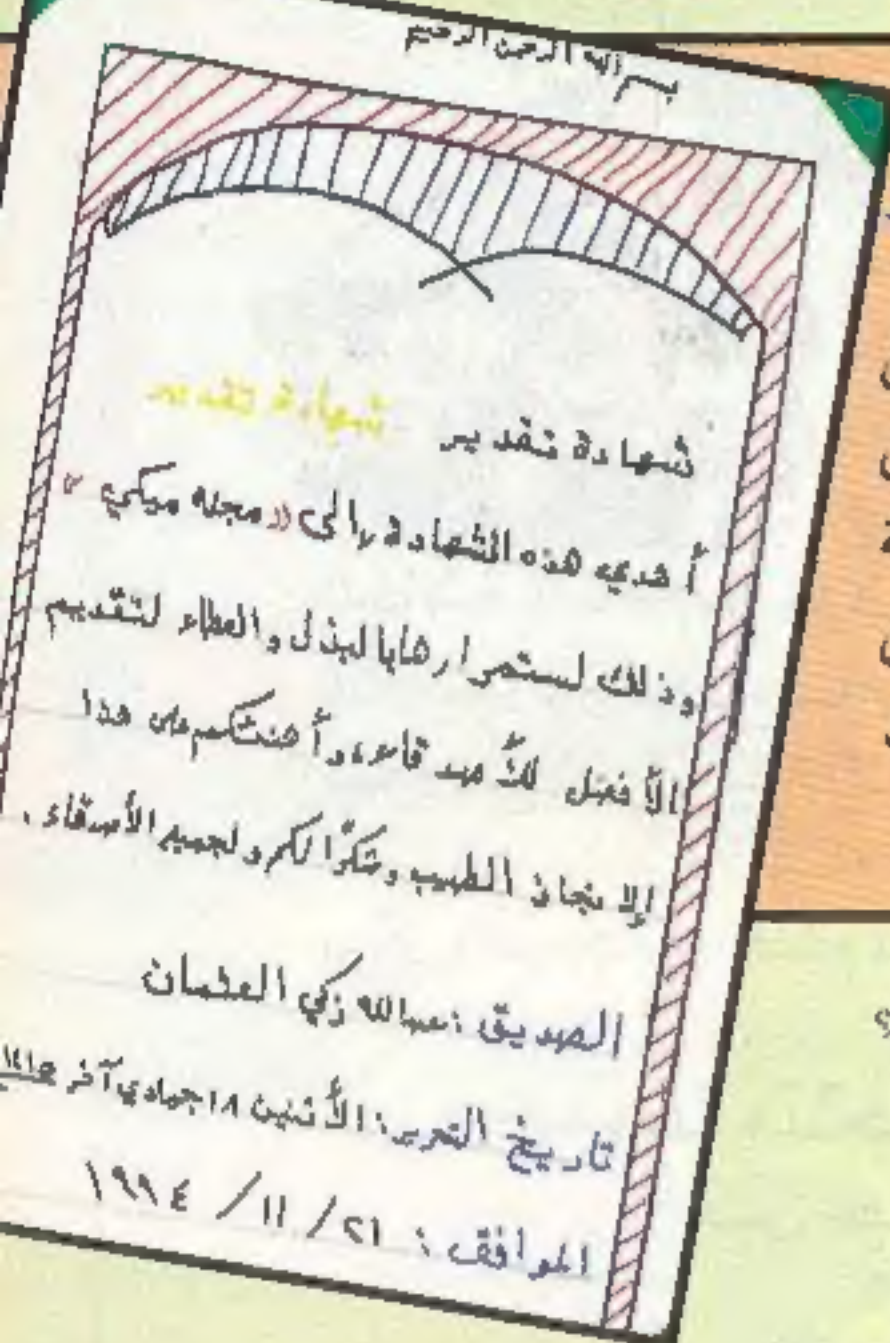 بسم الله الرحمن الرحيم
شهادة تقدير شهادة تقدير
أهدي هذه الشهادة إلى «مجله ميكي»
وذلك لستمرارها بالبذل والعطاء لتقديم
الأفضل لأصدقاء وأهنئكم على هذا
الإنجاز الطيب وشكرًا لكم ولجميع الأصدقاء.
الصديق: عبدالله زكي العثمان
تاريخ التحرير: الأثنين ١٨ جمادي آخر ١٤١٥هـ
الموافق: ٢١ / ١١ / ١٩٩٤